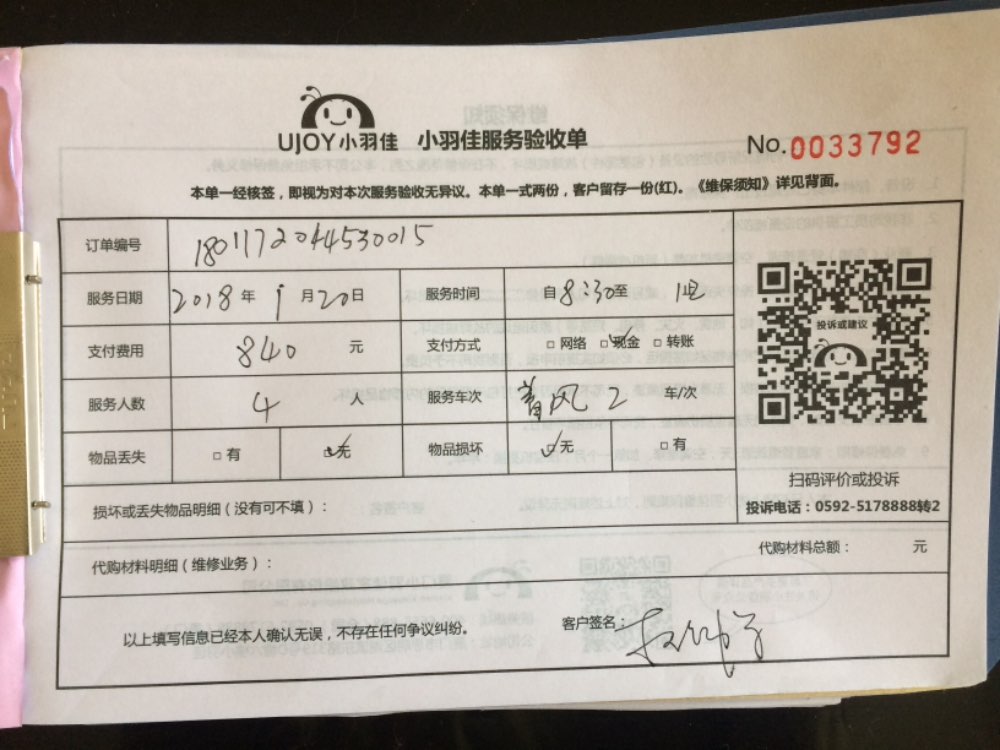 UJOY小羽佳 小羽佳服务验收单
No.0033792
本单一经核签，即视为对本次服务验收无异议。本单一式两份，客户留存一份(红)。《维保须知》详见背面。
订单编号 1801172044530015
服务日期 2018 年 1 月 20 日 服务时间 自 8:30 至
支付费用 840 元 支付方式 □ 网络 □ 现金 □ 转账
服务人数 4 人 服务车次 2 车/次
物品丢失 □ 有 □ 无 物品损坏 □ 无 □ 有
投诉或建议
扫码评价或投诉
投诉电话：0592-5178888转2
损坏或丢失物品明细（没有可不填）：
代购材料明细（维修业务）： 代购材料总额： 元
以上填写信息已经本人确认无误，不存在任何争议纠纷。 客户签名：